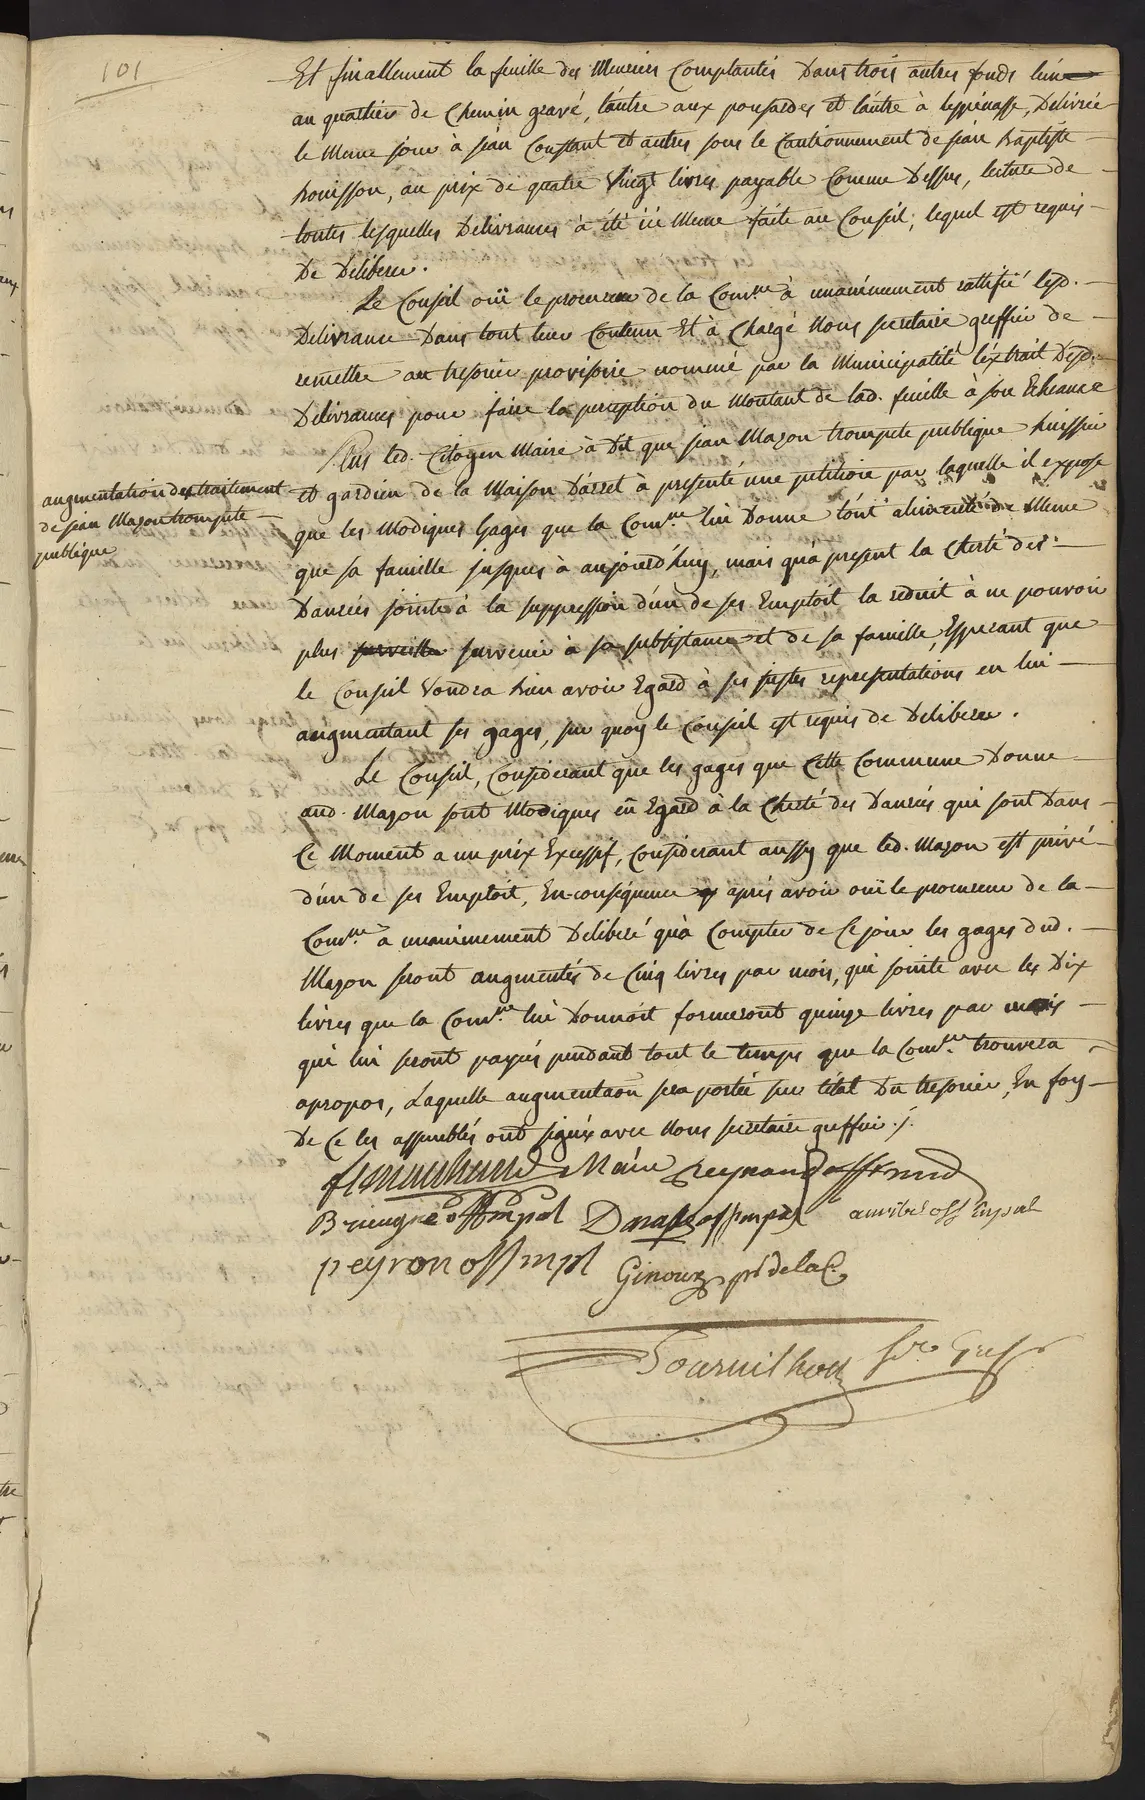 101
Et finallement la feuille des Meuriers Complantés Dans trois autres fonds l'un
au quartier de Chemin gravé, l'autre aux pousardes et l'autre à lespinasse, Delivrée
le Meme jour à jean Constant et autres sous le Cautionnement de jean baptiste
bouisson, au prix de quatre vingt livres payable Comme Dessus, lecture de
toutes lesquelles Delivrances à été ici Meme faite au Conseil, lequel est requis
De Deliberer.
Le Conseil oüi le procureur de la Com.ne à unanimement rattifié lesd.
Delivrance Dans tout leur Contenu Et à Chargé Nous secretaire greffier de
remettre au tresorier provisoire nommé par la Municipalité l'extrait Desd.
Delivrances pour faire la perception du Montant de lad. feuille à son Echeance
Plus led. Citoyen Maire à Dit que jean Mazon trompete publique huissier
augmentation des traitement
de jean Mazon trompete
publique
et gardien de la Maison D'arret a presenté une petition par laquelle il expose
que les Modiques Gages que la Com.ne lui Donne l'ont alimenté de Meme
que sa famille jusques à aujourd'huy, mais qu'à present la Cherté des
Danrées jointe à la suppression d'un de ses Employt la reduit à ne pouvoir
plus surveille survenir à sa subsistance et de sa famille, Esperant que
le Conseil Voudra bien avoir Egard à ses justes representations en lui
augmentant ses gages, sur quoy le Conseil est requis de Deliberer.
Le Conseil, Considerant que les gages que Cette Commune Donne
aud. Mazon sont Modiques eü Egard à la Cherté des Danrées qui sont Dans
Ce Moment a un prix Excessif, Considerant aussy que led. Mazon est privé
d'un de ses Employt, En-conséquence après avoir oüi le procureur de la
Com.ne a unanimement Deliberé qu'à Compter de Ce jour les gages dud.
Mazon seront augmentés de Cinq livres par mois, qui jointe avec les Dix
livres que la Com.ne lui Donnoit formeront quinze livres par mois
qui lui seront payés pendant tout le temps que la Com.ne trouvera
apropos, Laquelle augmentaon sera portée sur l'état Du tresorier, En foy
De Ce les assemblés ont signéx avec Nous secretaire greffier ./.
Maire Reynaud off mud
off mpal off mpal off mpal
peyron off mpl Giroux pr de la C.
Tournilhon sre Greff